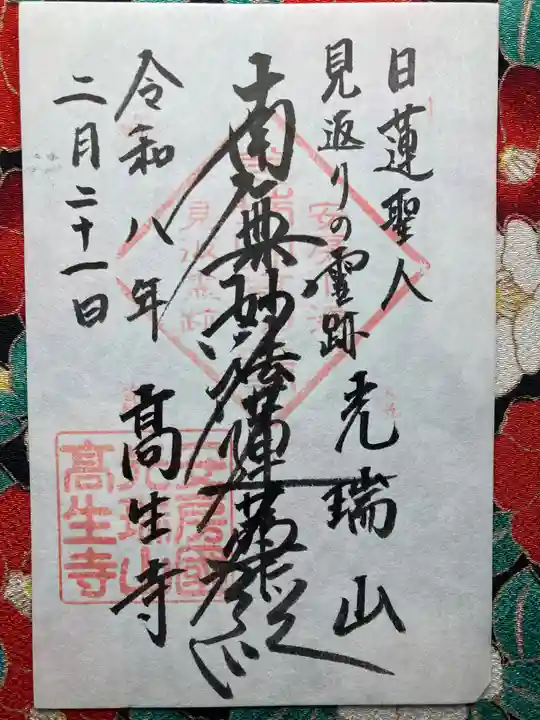 日蓮聖人
見返りの霊跡 光瑞山
南無妙法蓮華経
令和八年 髙生寺
二月二十一日
安房國
光瑞山
髙生寺